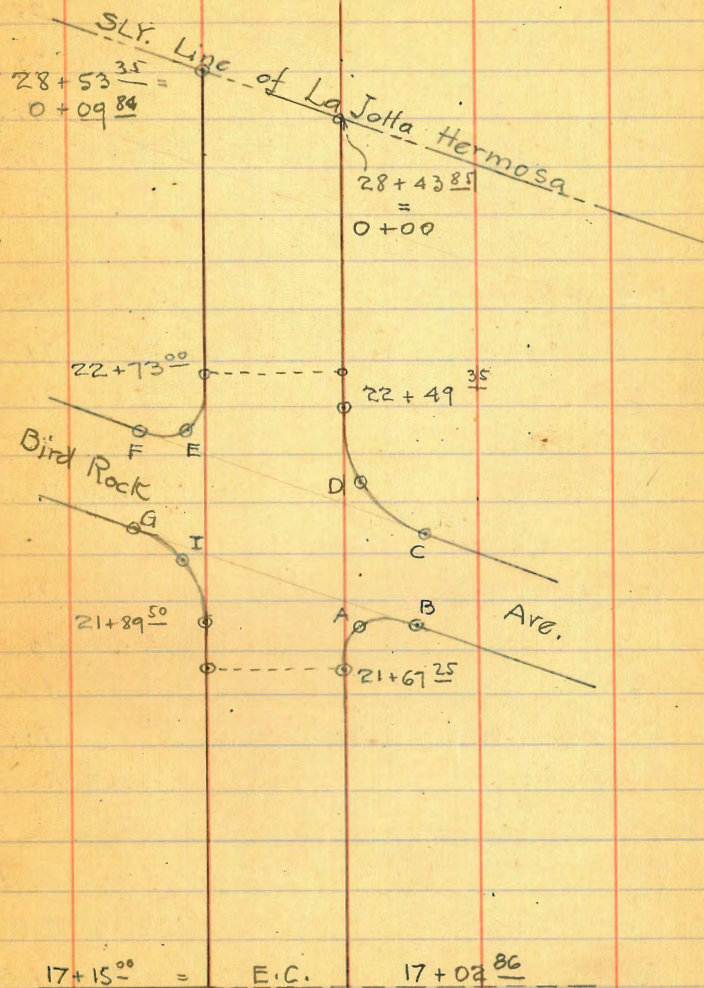 SLY. Line of La Jolla Hermosa
28+53 35 =
0+09 84
28+43 85
=
0+00
22+73 00
22+49 35
F E
Bird Rock
D
G
I
C
21+89 50
A B
Ave.
21+67 25
17+15 00 = E.C. 17+02 86